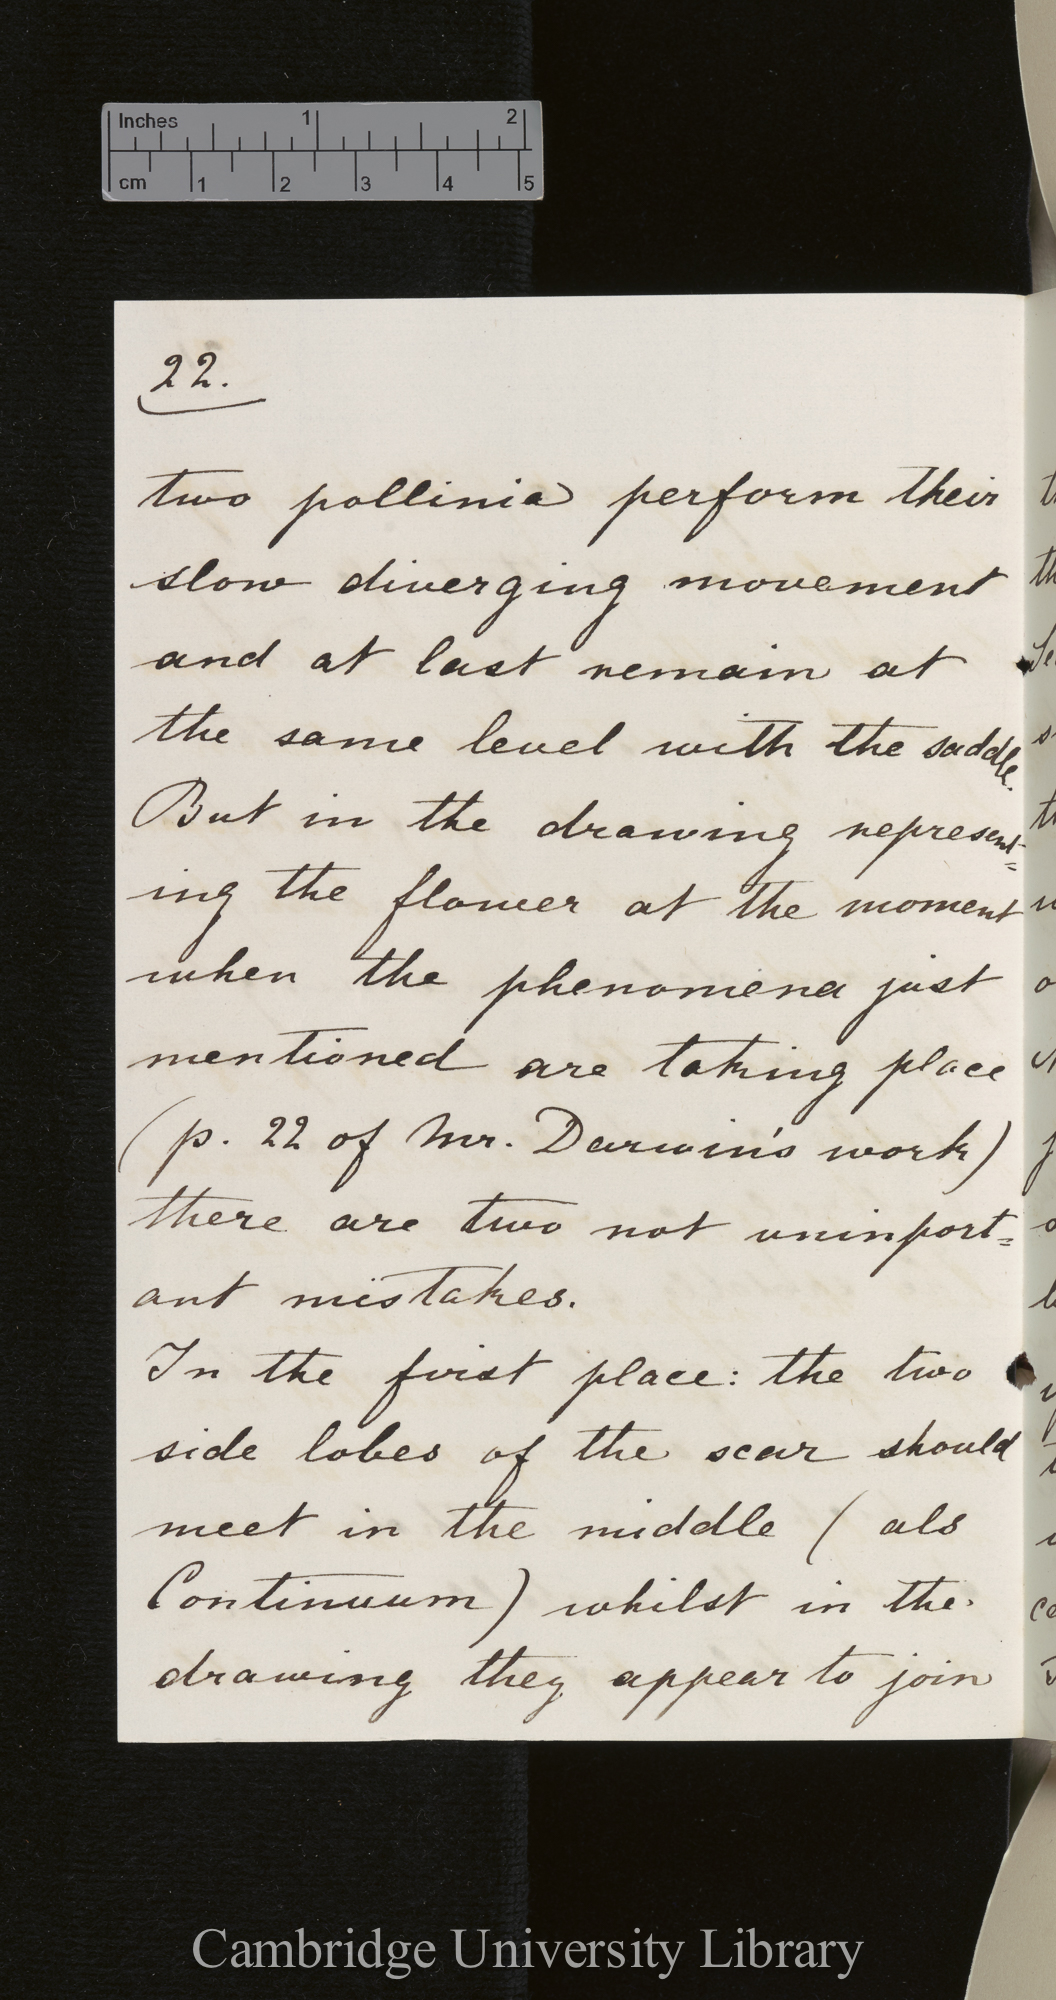 Inches 1 2
cm 1 2 3 4 5
22.
two pollinia perform their
slow diverging movement
and at last remain at
the same level with the saddle.
But in the drawing represent=
ing the flower at the moment
when the phenomena just
mentioned are taking place
(p. 22 of Mr. Darwin's work)
there are two not uninport=
ant mistakes.
In the first place: the two
side lobes of the scar should
meet in the middle (als
Continuum) whilst in the
drawing they appear to join
Cambridge University Library